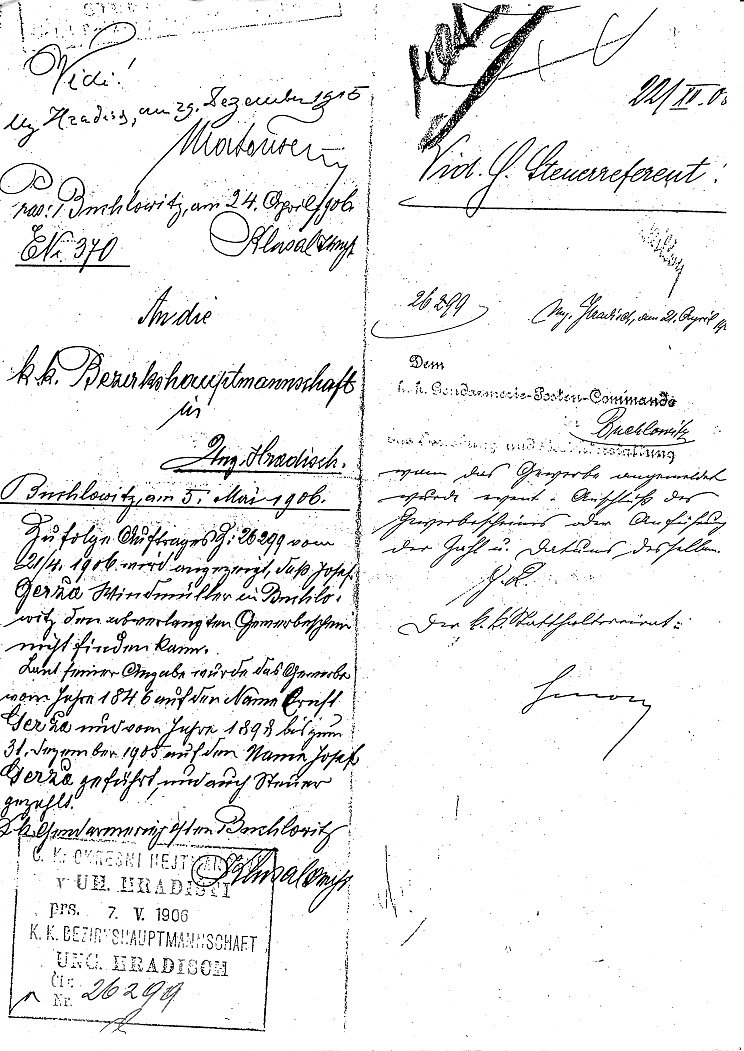 Vidi!
Ung Hradisch, am 29. Dezember 1915
Präs: Buchlowitz, am 24. April 1906
ENr. 370
Klusal
An die
k. k. Bezirkshauptmannschaft
in
Ung. Hradisch.
Buchlowitz, am 5. Mai 1906.
Zufolge Auftrages Z: 26299 vom
21/4. 1906 wird angezeigt, daß Josef
Gerža Windmüller in Buchlo-
witz den abverlangten Gewerbeschein
nicht finden kann.
Laut seiner Angabe wurde das Gewerbe
vom Jahre 1846 auf den Name Ernst
Gerža und vom Jahre 1898 bis zum
31. Dezember 1905 auf den Name Josef
Gerža geführt, und auch Steuer
gezahlt.
K. k. Gendarmerieposten Buchlowitz
Klusal
C. K. OKRESNÍ HEJTMAN
v UH. HRADIŠTI
prs. 7. V. 1906
K. K. BEZIRKSHAUPTMANNSCHAFT
UNG. HRADISCH
Čís.
Nr. 26299
Vid. H. Steuerreferent!
26299
Ung. Hradisch, am 21. April
Dem
k. k. Gendarmerie-Posten-Commando
in Buchlowitz
zur Erhebung und
wann das Gewerbe angemeldet
wurde event. Anschluß des
Gewerbescheines oder Anführung
der Zahl u. Datums desselben.
Der k. k. Statthaltereirat: